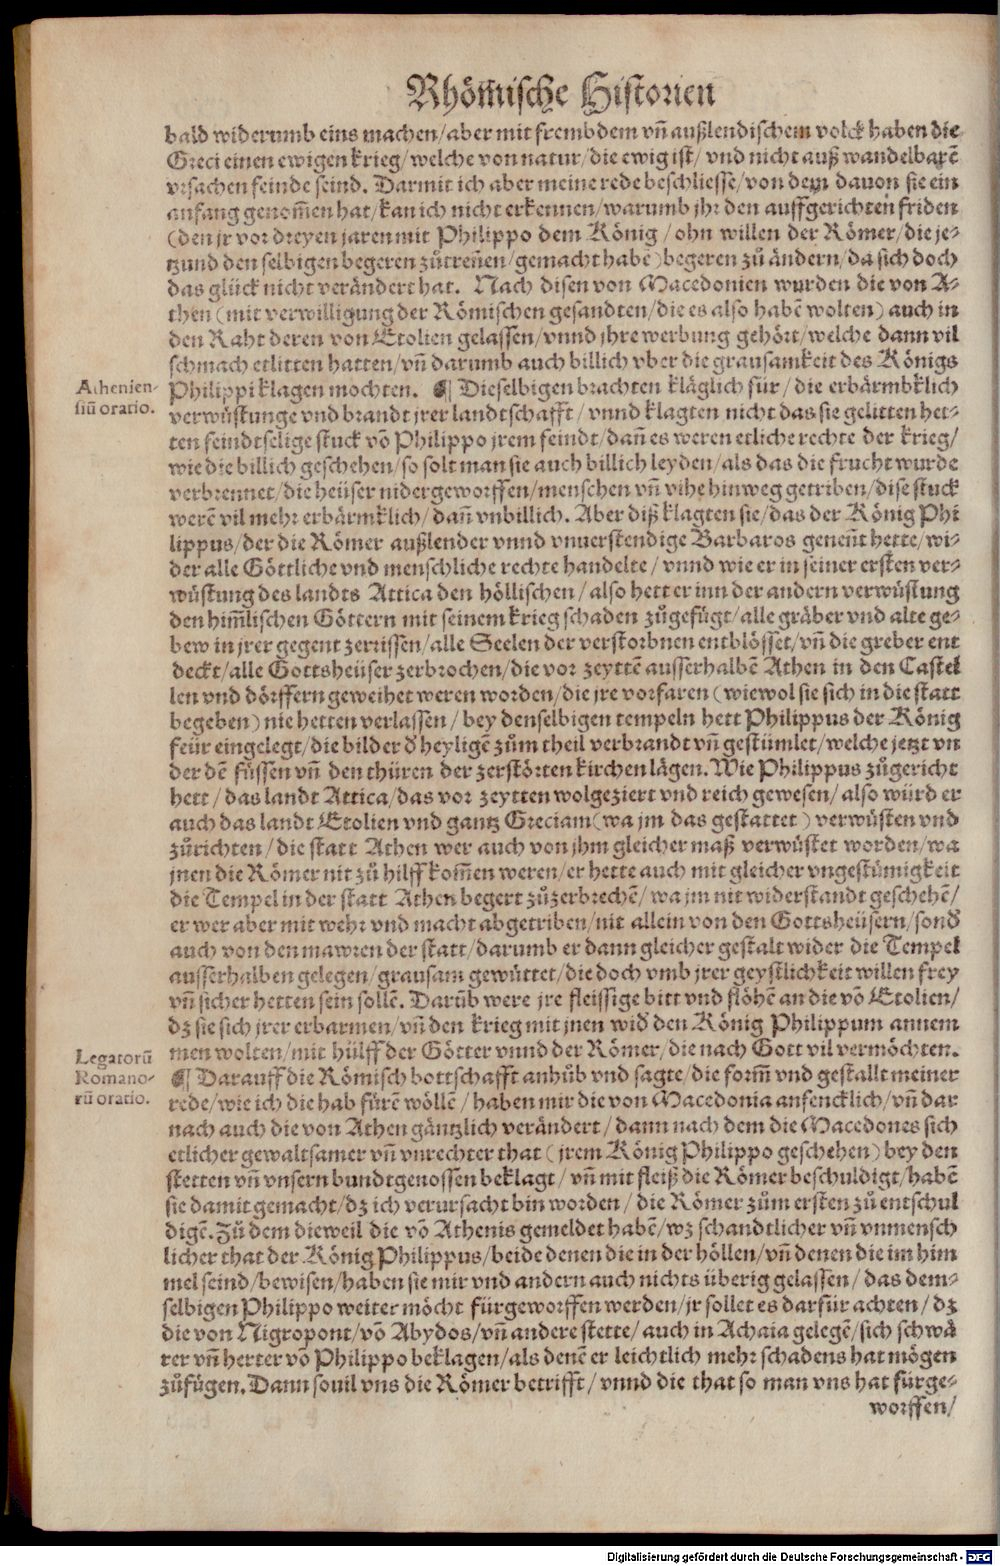 Rhömische Historien
bald widerumb eins machen/aber mit frembdem vñ außlendischem volck haben die
Greci einen ewigen krieg/welche von natur/die ewig ist/ vnd nicht auß wandelbarẽ
vrsachen feinde seind. Darmit ich aber meine rede beschliesse/von dem davon sie ein
anfang genom̃en hat/kan ich nicht erkennen/warumb jhr den auffgerichten friden
(den jr vor dreyen jaren mit Philippo dem König / ohn willen der Römer/die je-
tzund den selbigen begeren zůtreñen/gemacht habẽ) begeren zů ändern/da sich doch
das glück nicht verändert hat. Nach disen von Macedonien wurden die von A-
then (mit verwilligung der Römischen gesandten/die es also habẽ wolten) auch in
den Raht deren von Etolien gelassen/vnnd jhre werbung gehört/welche dann vil
schmach erlitten hatten/vñ darumb auch billich vber die grausamkeit des Königs
Athenien-
siũ oratio.
Philippi klagen mochten. ¶ Dieselbigen brachten kläglich für/ die erbärmbklich
verwüstunge vnd brandt jrer landtschafft/ vnnd klagten nicht das sie gelitten het-
ten feindtselige stuck võ Philippo jrem feindt/dañ es weren etliche rechte der krieg/
wie die billich geschehen/so solt man sie auch billich leyden/als das die frucht wurde
verbrennet/die heüser nidergeworffen/menschen vñ vihe hinweg getriben/dise stuck
werẽ vil mehr erbärmklich/dañ vnbillich. Aber diß klagten sie/das der König Phi
lippus/der die Römer außlender vnnd vnuerstendige Barbaros geneñt hette/wi-
der alle Göttliche vnd menschliche rechte handelte/ vnnd wie er in seiner ersten ver-
wüstung des landts Attica den höllischen/also hett er inn der andern verwüstung
den him̃lischen Göttern mit seinem krieg schaden zůgefügt/alle gräber vnd alte ge-
bew in jrer gegent zerrissen/alle Seelen der verstorbnen entblösset/vñ die greber ent
deckt/alle Gottsheüser zerbrochen/die vor zeyttẽ ausserhalbẽ Athen in den Castel
len vnd dörffern geweihet weren worden/die jre vorfaren (wiewol sie sich in die statt
begeben) nie hetten verlassen/ bey denselbigen tempeln hett Philippus der König
feür eingelegt/die bilder d̓ heyligẽ zům theil verbrandt vñ gestümlet/welche jetzt vn
der dẽ füssen vñ den thüren der zerstörten kirchen lägen. Wie Philippus zůgericht
hett/das landt Attica/das vor zeytten wolgeziert vnd reich gewesen/also würd er
auch das landt Etolien vnd gantz Greciam(wa jm das gestattet) verwüsten vnd
zůrichten/die statt Athen wer auch von jhm gleicher maß verwüstet worden/wa
jnen die Römer nit zů hilff kom̃en weren/er hette auch mit gleicher vngestümigkeit
die Tempel in der statt Athen begert zůzerbrechẽ/ wa jm nit widerstandt geschehẽ/
er wer aber mit wehr vnd macht abgetriben/nit allein von den Gottsheüsern/sond̓
auch von den mawren der statt/darumb er dann gleicher gestalt wider die Tempel
ausserhalben gelegen/grausam gewüttet/die doch vmb jrer geystlichkeit willen frey
vñ sicher hetten sein sollẽ. Darũb were jre fleissige bitt vnd flöhẽ an die võ Etolien/
dz sie sich jrer erbarmen/vñ den krieg mit jnen wid̓ den König Philippum annem
Legatorũ
Romano-
rũ oratio.
men wolten/mit hülff der Götter vnnd der Römer/die nach Gott vil vermöchten.
¶ Darauff die Römisch bottschafft anhůb vnd sagte/die form̃ vnd gestallt meiner
rede/wie ich die hab fürẽ wöllẽ/ haben mir die von Macedonia anfencklich/vñ dar
nach auch die von Athen gäntzlich verändert/ dann nach dem die Macedones sich
etlicher gewaltsamer vñ vnrechter that (jrem König Philippo geschehen) bey den
stetten vñ vnsern bundtgenossen beklagt/ vñ mit fleiß die Römer beschuldigt/habẽ
sie damit gemacht/dz ich verursacht bin worden/ die Römer zům ersten zů entschul
digẽ. Zů dem dieweil die võ Athenis gemeldet habẽ/wz schandtlicher vñ vnmensch
licher that der König Philippus/beide denen die in der höllen/vñ denen die im him
mel seind/bewisen/haben sie mir vnd andern auch nichts überig gelassen/ das dem-
selbigen Philippo weiter möcht fürgeworffen werden/jr sollet es darfür achten/ dz
die von Nigropont/võ Abydos/vñ andere stette/ auch in Achaia gelegẽ/sich schwä
rer vñ herter võ Philippo beklagen/als denẽ er leichtlich mehr schadens hat mögen
zůfügen. Dann souil vns die Römer betrifft/ vnnd die that so man vns hat fürge-
worffen/
Digitalisierung gefördert durch die Deutsche Forschungsgemeinschaft - DFG